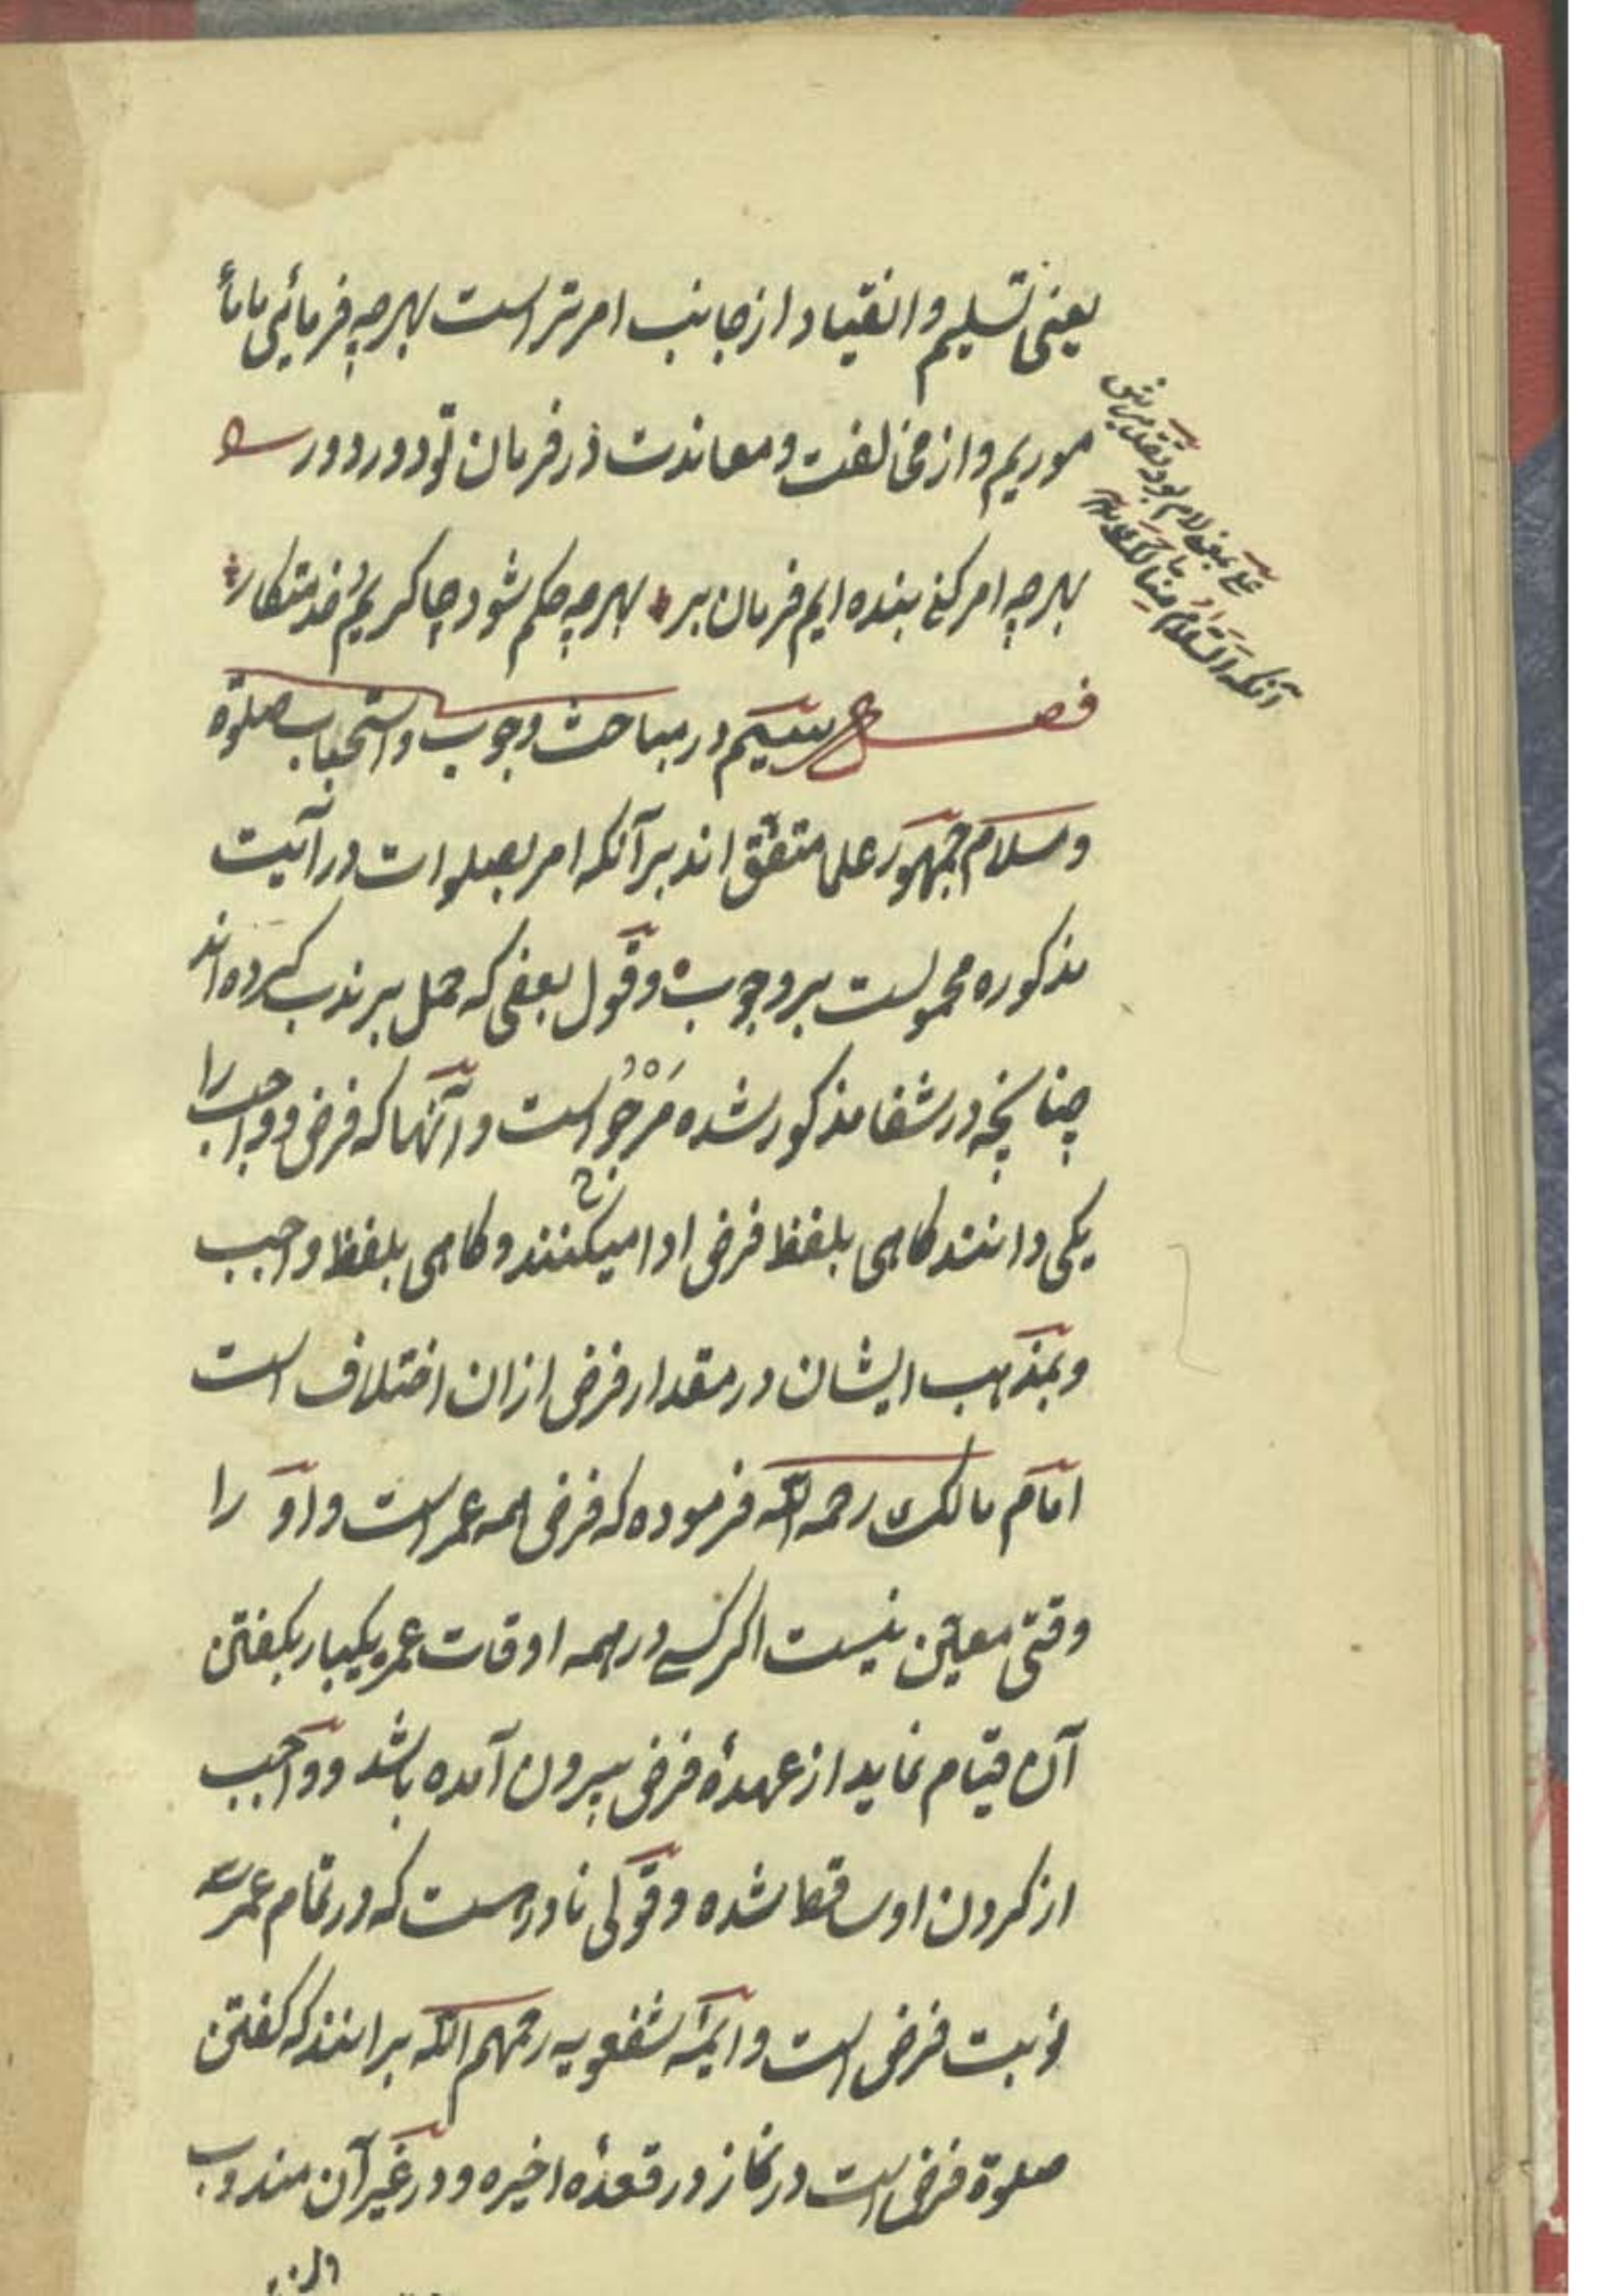 یعنی تسلیم و انقیاد از جانب امر تراست بهرچه فرمائی ما
موریم و از مخالفت و معاندت در فرمان تو دور دور
بهرچه امر کنی بنده ایم فرمان بر بهرچه حکم شود چاکریم خدمتکار
فصل سیم در مباحث وجوب و استحباب صلوة
و سلام جمهور علما متفق اند برآنکه امر بصلوات در آیت
مذکوره محمولست بر وجوب و قول بعضی که حمل بر ندب کرده اند
چنانچه در شفا مذکور شده مرجوح است و آنها که فرض و واجب را
یکی دانند کاهی بلفظ فرض ادا میکنند و کاهی بلفظ واجب
و بمذهب ایشان در مقدار فرض ازان اختلاف است
امام مالک رحمه الله فرموده که فرض همه عمر است و او را
وقتی معین نیست اکر کسے در همه اوقات عمر یکبار بکفتن
آن قیام نماید از عهدهٔ فرض بیرون آمده باشد و واجب
از کردن او ساقط شده و قولی نادر است که در تمام عمر سه
نوبت فرض است و ایمهٔ شفعویه رحمهم الله برانند که کفتن
صلوة فرض است در نماز در قعدهٔ اخیره و در غیر آن مندوب
علی بمعنی لام بود تقدیرش
آنکه السلام منا لک